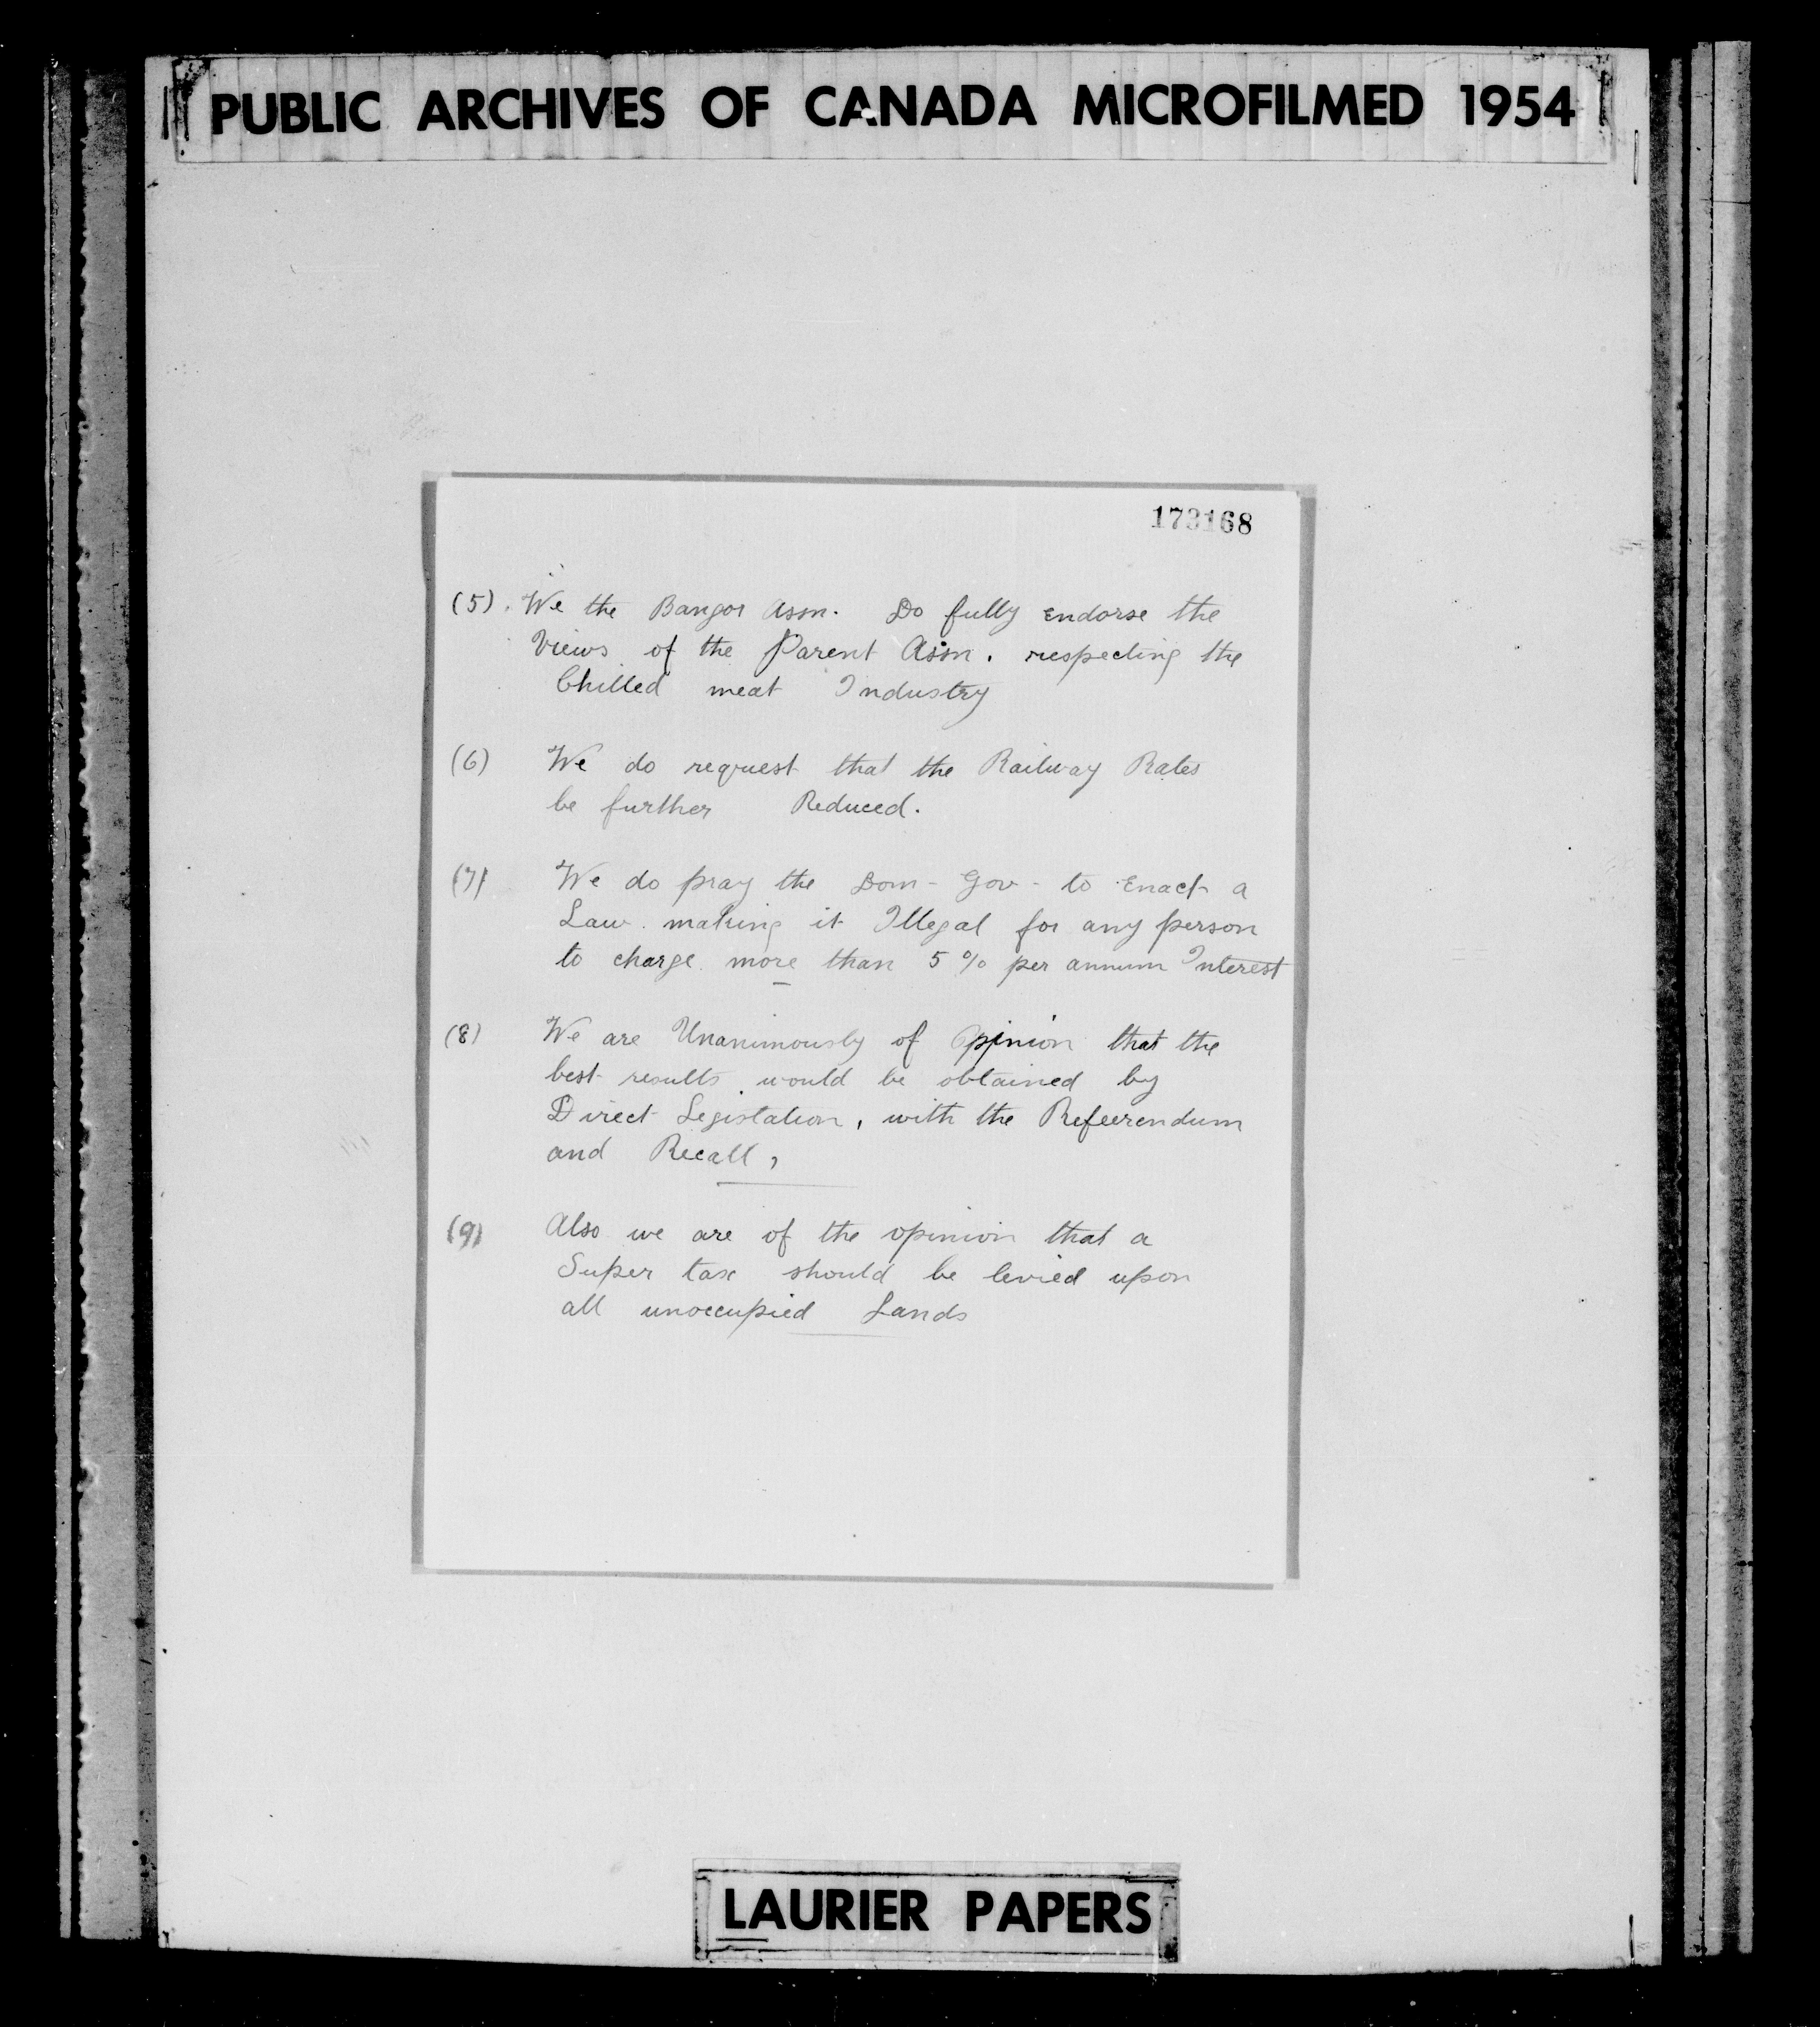 PUBLIC ARCHIVES OF CANADA MICROFILMED 1954
173168
(5). We the Bangor Assn. Do fully Endorse the
Views of the Parent Assn. respecting the
Chilled meat Industry
(6) We do request that the Railway Rates
be further Reduced.
(7) We do pray the Dom- Gov- to Enact a
Law making it Illegal for any person
to charge more than 5% per annum Interest
(8) We are Unanimously of Opinion that the
best results would be obtained by
Direct Legislation, with the Refeerendum
and Recall,
(9) Also we are of the opinion that a
Super tax should be levied upon
all unoccupied Lands
LAURIER PAPERS